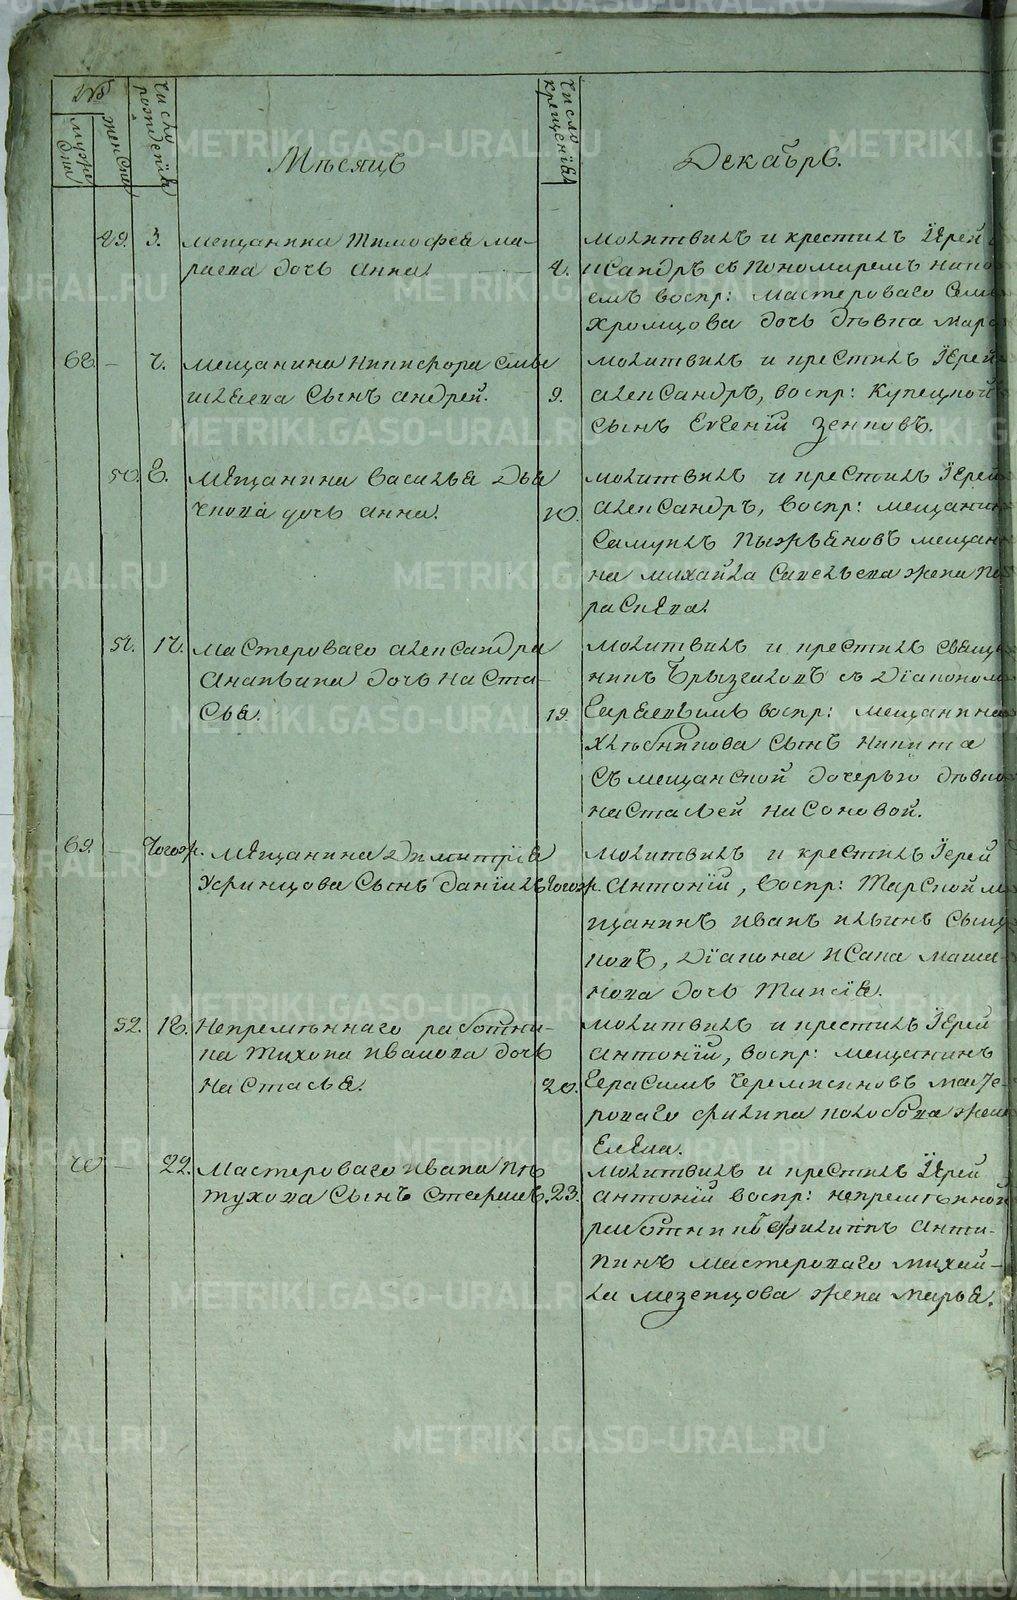 METRIKI.GASO-URAL.RU
№
мужес
кий
женски
Число
рожденія
Мѣсяцъ
Число
крещенія
Декабрь.
49. 3. Мещанина Тимофея Ма-
раева дочь Анна. 4.
Молитвилъ и крестилъ Іерей
ксандръ съ Пономаремъ
емъ воспр: Мастероваго
Хромцова дочь дѣвка
68 – 7. Мещанина Никифора
сынъ Андрей. 9.
Молитвилъ и крестилъ Іерей
Александръ, воспр: Купецкой
сынъ Евгеній Зенковъ.
50. 8. Мещанина Василья
дочь Анна. 10.
Молитвилъ и крестилъ Іерей
Александръ, воспр: мещанин
мещан
на Михайла Савельева жена
51. 17. Мастероваго Александра
дочь Наста-
сья. 19.
Молитвилъ и крестилъ свяще
никъ съ Діакономъ
воспр: мещанина
Хлѣбникова сынъ Никита
съ мещанской дочерью дѣвкою
Настасьей Насоновой.
69. – Тогож. Мещанина Димитрія
Уфинцова сынъ Даніилъ Тогож.
Молитвилъ и крестилъ Іерей
Антоній, воспр: Тарской ме
щанинъ Иванъ Ильинъ
Діакона Исака
дочь Таисія.
52. 18. Непремѣннаго работни-
ка Тихона Иванова дочь
Настасья. 20.
Молитвилъ и крестилъ Іерей
Антоній, воспр: мещанинъ
Герасимъ масте-
роваго Филипа Колобова жена
Елена.
70 – 22. Мастероваго Ивана Пѣ
тухова сынъ Стефанъ. 23.
Молитвилъ и крестилъ Іерей
Антоній воспр: непремѣнной
работникъ Филиппъ Анти-
пинъ Мастероваго Михай-
ла Мезенцова жена Марья.